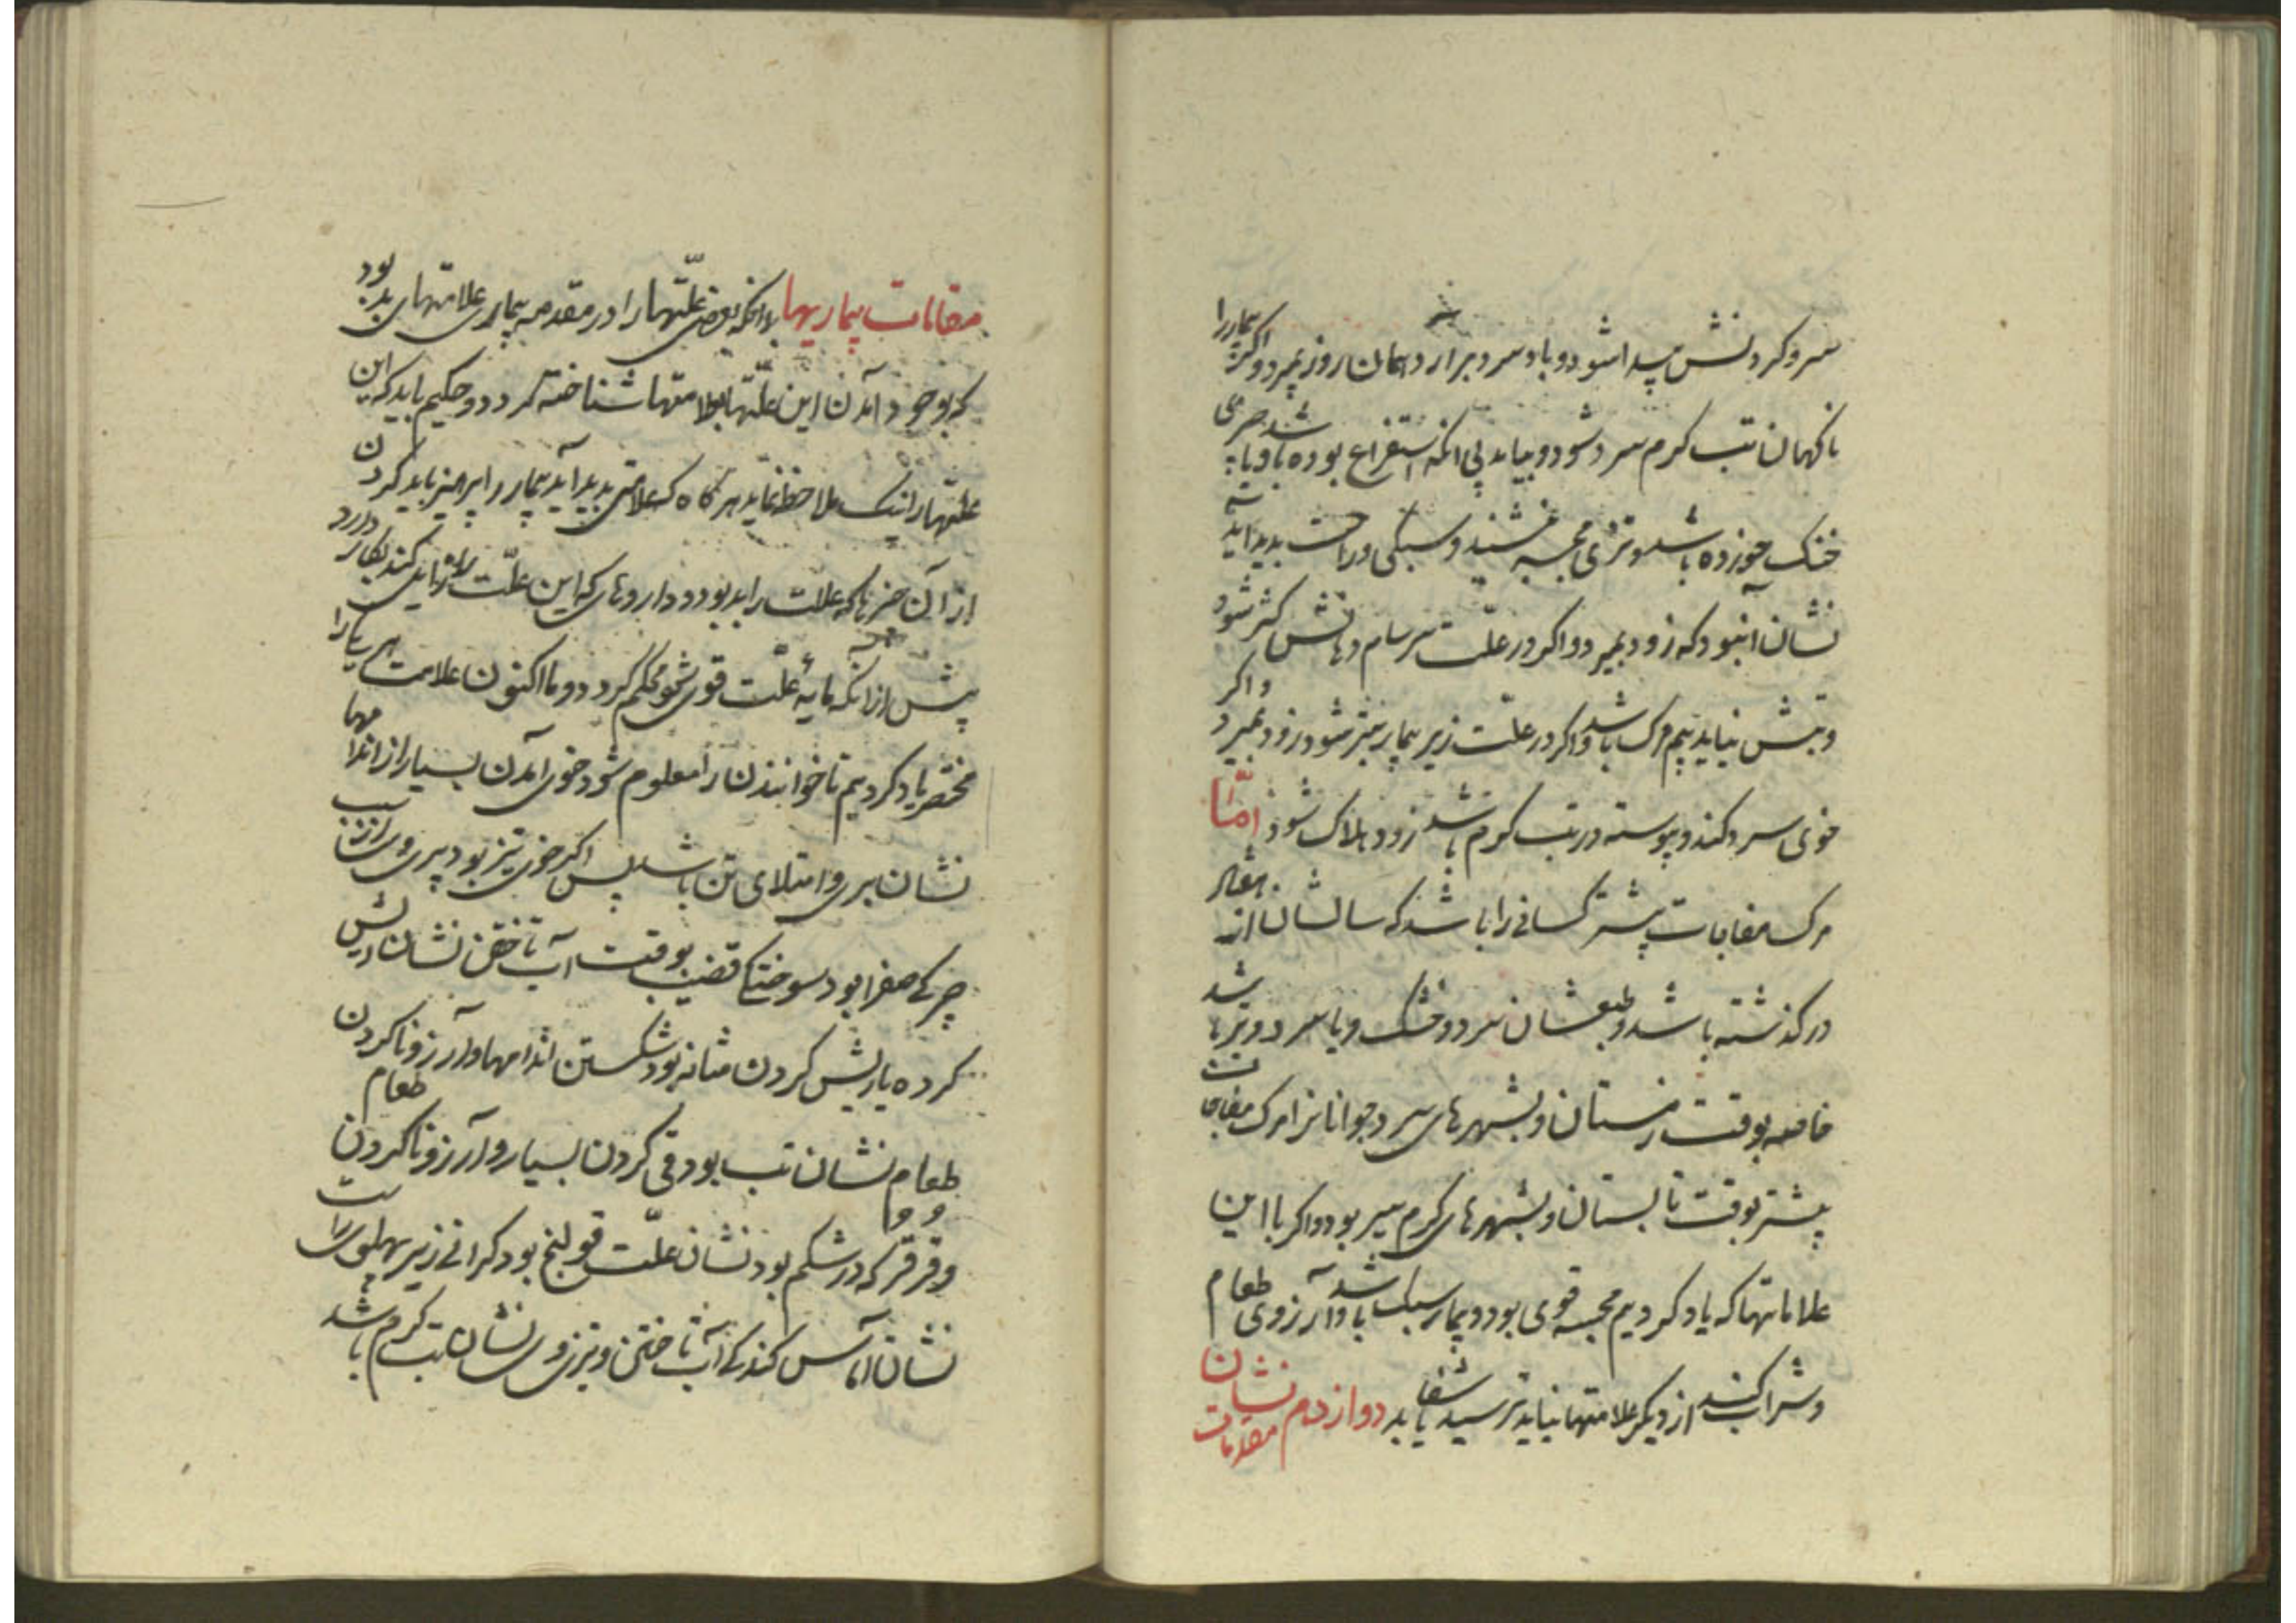 سر و کردنش پیدا شود و باد سرد برارد همان روز بمیرد و اگر بیمار را
ناکهان تب کرم سرد شود و بیاید بی انکه استفراغ بوده باشد و یا چیزی
خنک خورده باشد و تری مجسه بنشیند و سبکی و راحت بدید آید
نشان آنبود که زود بمیرد و اکر در علت سرسام دهانش کثر شود
و تبش نیاید بیم مرک باشد و اکر در علت زیر بیمار بتر شود زود بمیرد و اکر
خوی سرد کند و پیوسته در تب کرم باشد زود هلاک شود امّا
مرک مفاجات بیشتر کسانی را باشد که سالشان از هفتاد
در کذشته باشد و طبعشان سرد و خشک و یا سرد و تر باشد
خاصه بوقت زمستان و بشهرهای سرد و جوانانرا مرک مفاجات
بیشتر بوقت تابستان و بشهرهای کرم سیر بود و اکر با این
علاماتها که یاد کردیم مجسه قوی بود و بیمار سبک باشد و آرزوی طعام
و شراب کند از دیکر علامتها نباید ترسید شفا یابد دوازدهم نشان مقدمات
مقامات بیماریها بدانکه بعضی علّتها را در مقدمه بیماری علامتهای بد بود
که بوجود آمدن این علّتها بعلامتها شناخته کردد و حکیم باید که این
علّتها را نیک ملاحظه نماید هر کاه که علامتی بدید آید بیمار را پرهیز باید کردن
از آن چیزها که علت را بد بود و داروهای که این علّت را زایل کند بکار دارد
پیش از انکه مایهٔ علّت قوی شود و محکم کردد و ما اکنون علامت هر یک را
مختصر یاد کردیم تا خوانندن را معلوم شود خوی آمدن بسیار از اندامها
نشان پری و امتلای تن باشد پس اکر خوی تیز بود پری وی از سبب
چرکی صفرا بود سوختنکا قضیب بوقت آب تاختن نشان ریش
کرده یا ریش کردن مثانه بود شکستن اندامها و آرزو ناکردن طعام
طعام نشان تب بود قی کردن بسیار و آرزو ناکردن
و قرقر که در شکم بود نشان علّت قولنج بود کرانی زیر پهلوی راست
نشان آماس کند کی آب تاختن و تیزی وی نشان تب کرم باشد